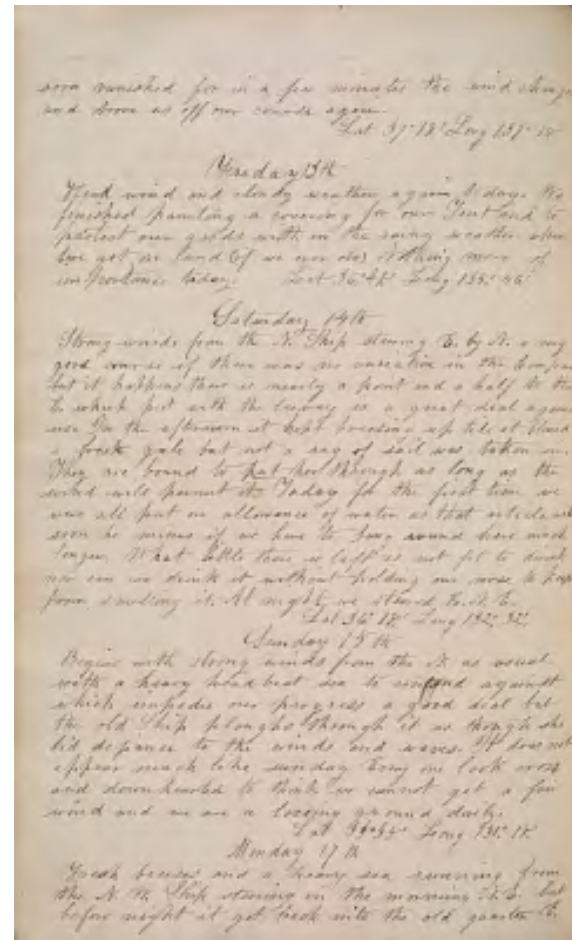 soon vanished for in a few minutes the wind
and drove us off our course again
Lat 37° 18' Long 137° 18'
Friday 13th
Head wind and cloudy weather again today. We
finished painting a covering for our Tent and to
protect our goods with in the rainy weather when
we get on land (if we ever do) Nothing more of
importance today. Lat 36° Long 135° 46'
Saturday 14th
Strong winds from the N. Ship steering E. by N. a very
good course if there was no variation in the Compass
but it happens there is nearly a point and a half to the
E which put with the leeway is a great deal against
us. In the afternoon it kept breezing up till it blowed
a fresh gale but not a rag of sail was taken in.
They are bound to put her through as long as the
wind will permit it. Today for the first time we
were all put on allowance of water as that article will
soon be minus if we have to bang around here much
longer. What little there is left is not fit to drink
nor can we drink it without holding our nose to keep
from smelling it. At night we steered E. N. E.
Lat 36° 18' Long 132° 32'
Sunday 15th
Begins with strong winds from the N. as usual
with a heavy head beat sea to contend against
which impedes our progress a good deal but
the old Ship ploughs through it as though she
bid defiance to the winds and waves. It does not
appear much like sunday Every one look cross
and downhearted to think we cannot get a fair
wind and we are a loosing ground daily.
Lat Long 131° 18'
Monday 17th
Fresh breezes and a heavy sea running from
the N. Ship steering in the morning N.E. but
before night it got back into the old quarter